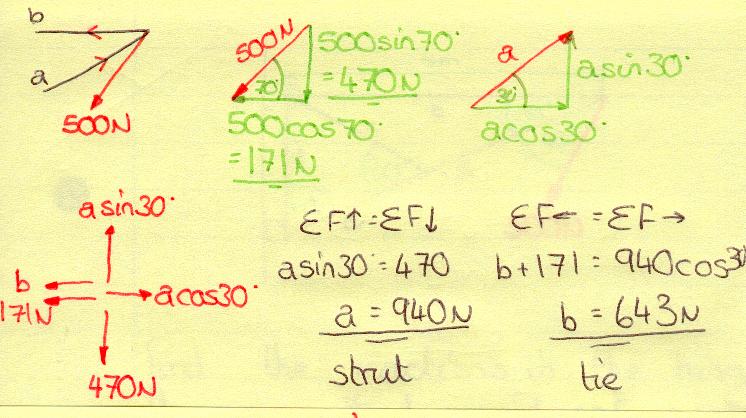 b
a
500N
500N
70°
500sin70°
= 470N
500cos70°
= 171N
a
30°
asin30°
acos30°
asin30°
b
171N
acos30°
470N
ΣF↑ = ΣF↓
asin30° = 470
a = 940N
strut
ΣF← = ΣF→
b + 171 = 940cos30
b = 643N
tie